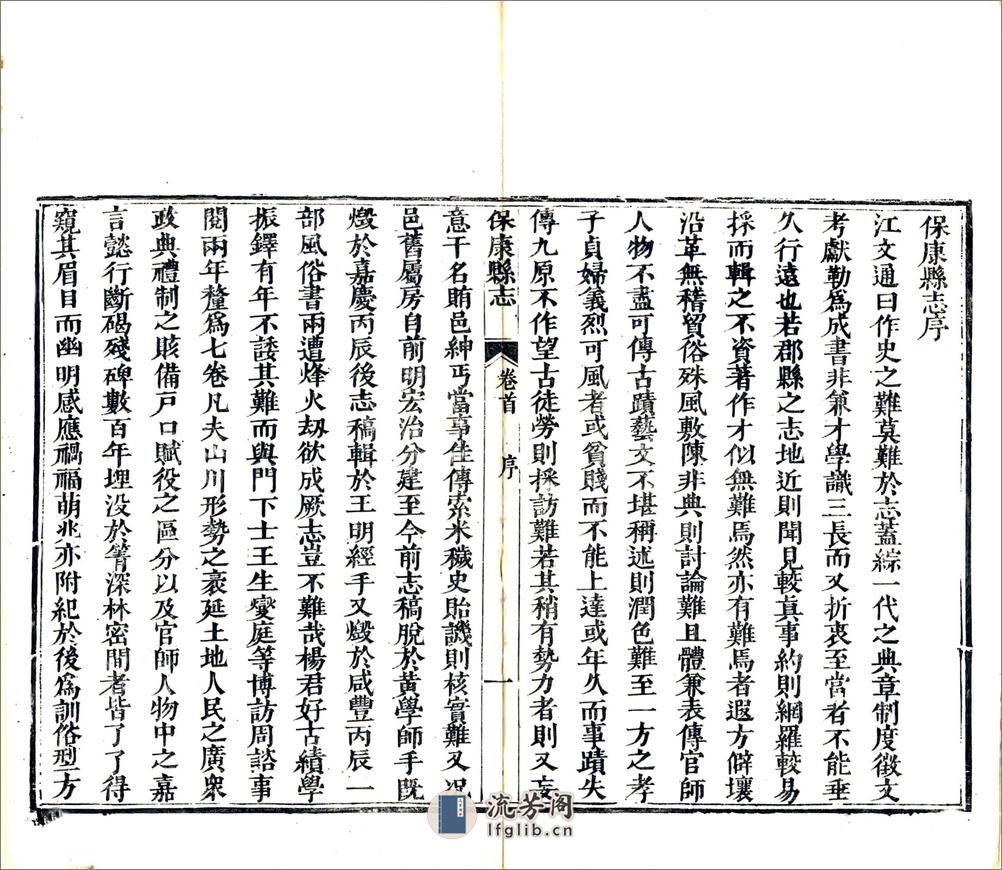 保康縣志序
江文通曰作史之難莫難於志蓋綜一代之典章制度徵文
考獻勒爲成書非兼才學識三長而又折衷至當者不能垂
久行遠也若郡縣之志地近則聞見較真事約則網羅較易
採而輯之不資著作才似無難焉然亦有難焉者遐方僻壤
沿革無稽貿俗殊風敷陳非典則討論難且體兼表傳官師
人物不盡可傳古蹟藝文不堪稱述則潤色難至一方之孝
子貞婦義烈可風者或貧賤而不能上達或年久而事蹟失
傳九原不作望古徒勞則採訪難若其稍有勢力者則又妄
保康縣志 卷首 序 一
意干名賄邑紳丐當事佳傳索米穢史貽譏則核實難又況
邑舊屬房自前明宏治分建至今前志稿脫於黃學師手既
燬於嘉慶丙辰後志稿輯於王明經手又燬於咸豐丙辰一
部風俗書兩遭烽火劫欲成厥志豈不難哉楊君好古績學
振鐸有年不諉其難而與門下士王生燮庭等博訪周諮事
閱兩年釐爲七卷凡夫山川形勢之袤延土地人民之廣衆
政典禮制之賅備戸口賦役之區分以及官師人物中之嘉
言懿行斷碣殘碑數百年埋没於箐深林密間者皆了了得
窺其眉目而幽明感應禍福萌兆亦附紀於後爲訓俗型方
流芳阁
lfglib.cn